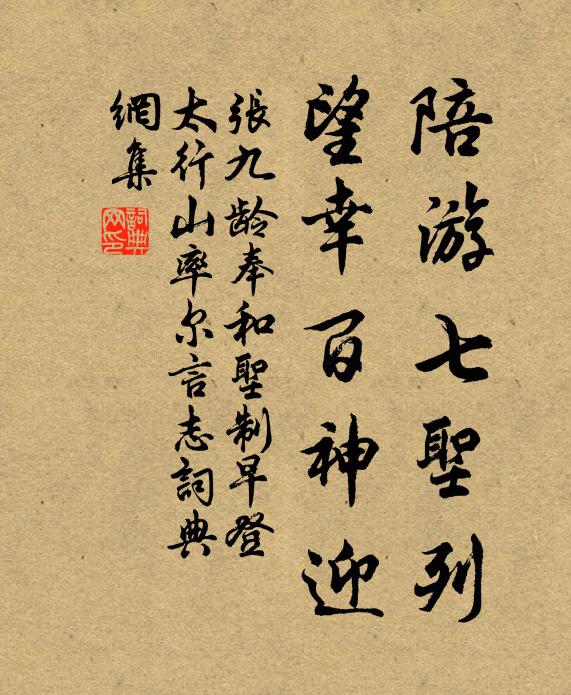 陪游七聖列
望幸百神迎
張九龄奉和聖制早登
太行山率尔言志詞典
網集
詞典
网印